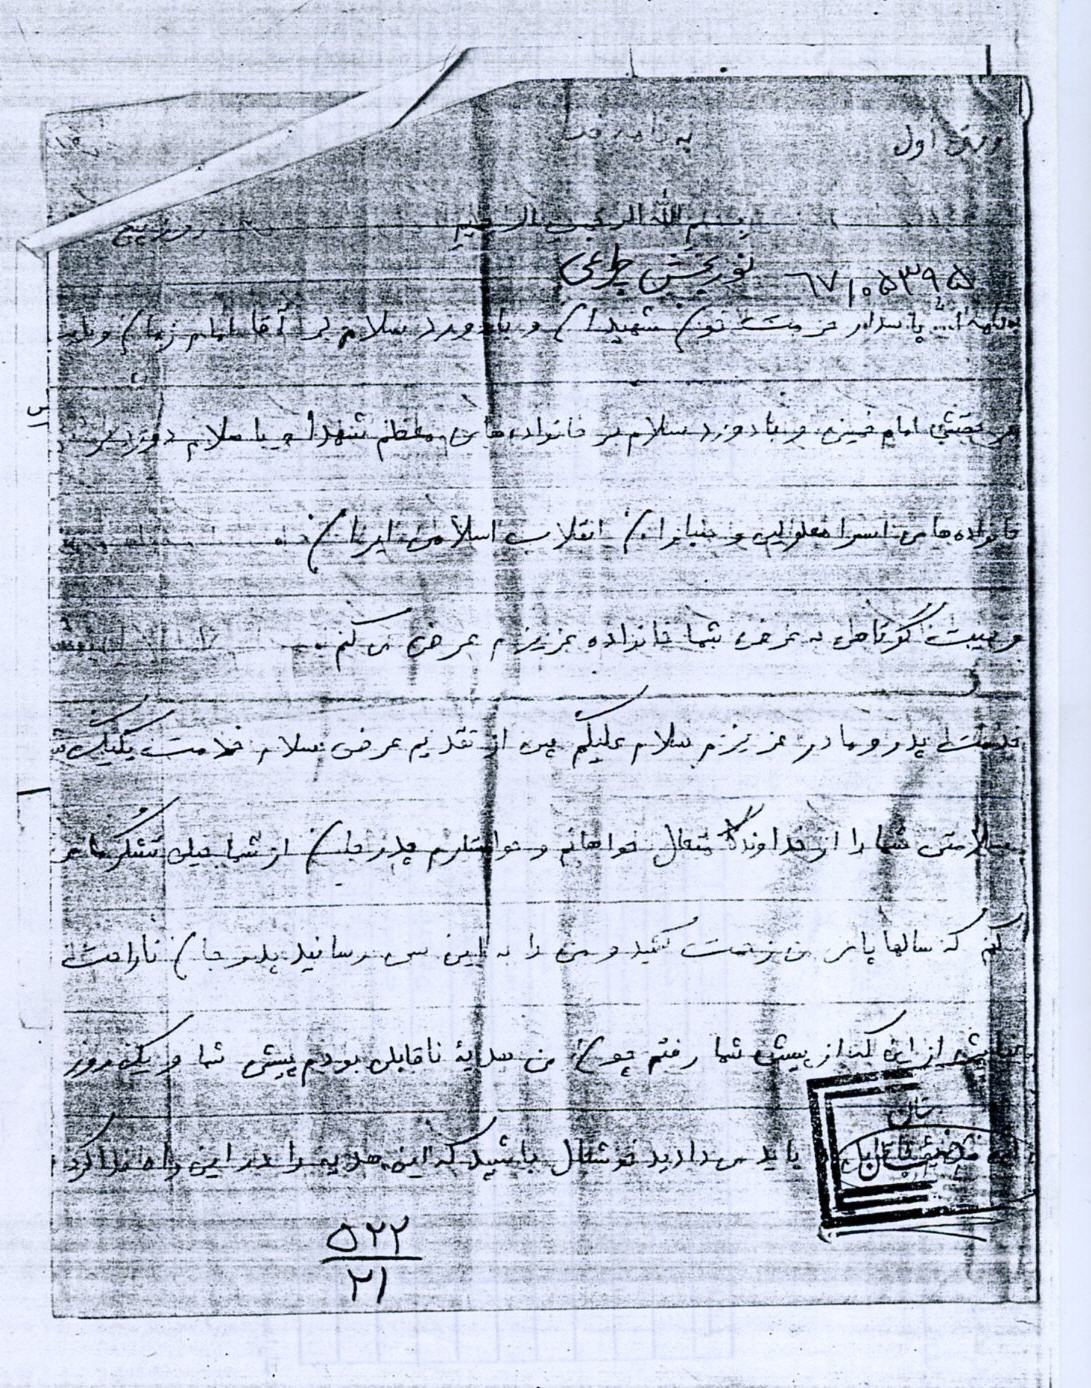 ورق اول
بسم الله الرحمن الرحیم
نوربخش چراغی ۶۷۱۰۵۳۹۵
پاسدار حرمت خون شهیدان و با درود و سلام بر آقا امام زمان و نایب
بر حقش امام خمینی و با درود سلام بر خانواده های معظم شهدا و با سلام درود بر
خانواده های اسرا معلولین و جنبازان انقلاب اسلامی ایران
وصیت کوتاهی به عرض شما خانواده عزیزم عرض می کنم.
خدمت پدر و مادر عزیزم سلام علیکم پس از تقدیم عرض سلام خدمت یکیک
سلامتی شما را از خداوند متعال خواهانم و خواستارم پدر جان از شما خیلی تشکر
کنم که سالها پای من زحمت کشید و من را به این سن رسانید پدر جان ناراحت
نباش از این که از پیش شما رفتم چون من هدیۀ ناقابلی بودم پیش شما و یک روز
باید می دادید خوشحال باشید که این هدیه را در این راه فدا کرد
۵۲۲
۲۱